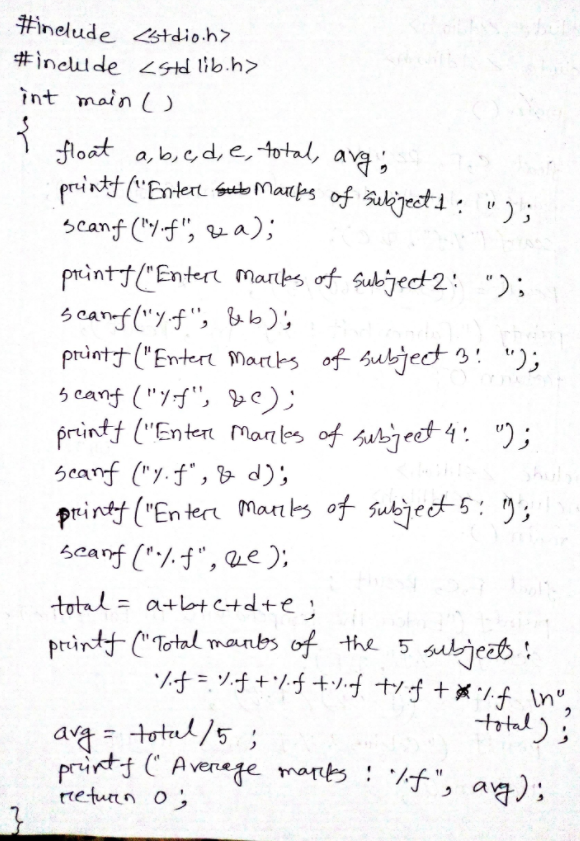 #include <stdio.h>
#include <stdlib.h>
int main ()
{
float a, b, c, d, e, total, avg;
printf ("Enter Marks of subject 1 : ");
scanf ("%f", & a);
printf ("Enter marks of subject 2: ");
scanf ("%f", &b);
printf ("Enter marks of subject 3: ");
scanf ("%f", &c);
printf ("Enter marks of subject 4: ");
scanf ("%f", & d);
printf ("Enter marks of subject 5: ");
scanf ("%f", &e);
total = a+b+c+d+e;
printf ("Total marks of the 5 subjects :
%f = %f + %f + %f + %f + %f \n",
total);
avg = total/5 ;
printf (" Average marks : %f", avg);
return 0;
}